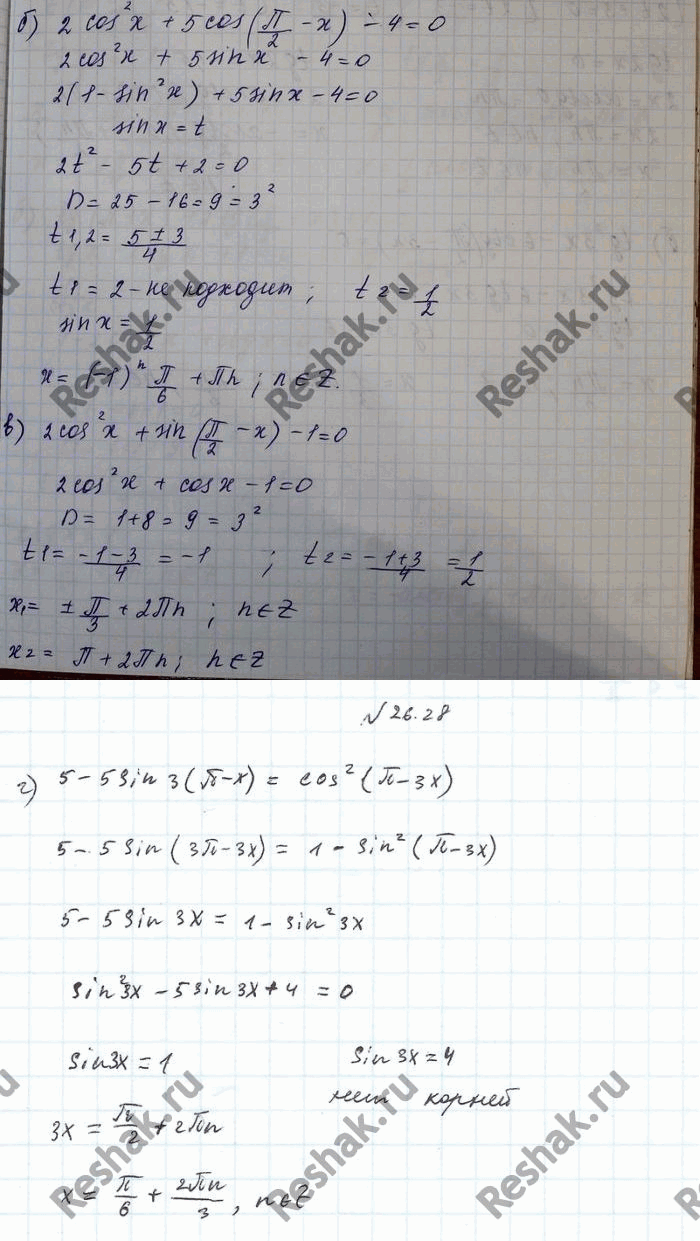 б) 2 cos²x + 5 cos(π/2 - x) - 4 = 0
2cos²x + 5sinx - 4 = 0
2(1 - sin²x) + 5sinx - 4 = 0
sinx = t
2t² - 5t + 2 = 0
D = 25 - 16 = 9 = 3²
t1,2 = (5 ± 3)/4
t1 = 2 - не подходит ; t2 = 1/2
sinx = 1/2
x = (-1)ⁿ π/6 + πn ; n ∈ Z.
в) 2cos²x + sin(π/2 - x) - 1 = 0
2cos²x + cosx - 1 = 0
D = 1 + 8 = 9 = 3²
t1 = (-1-3)/4 = -1 ; t2 = (-1+3)/4 = 1/2
x₁ = ± π/3 + 2πn ; n ∈ Z
x2 = π + 2πn ; n ∈ Z
№26.28
г) 5 - 5sin 3(π-x) = cos²(π-3x)
5 - 5sin(3π-3x) = 1 - sin²(π-3x)
5 - 5sin 3x = 1 - sin²3x
sin²3x - 5sin3x + 4 = 0
sin3x = 1 sin3x = 4
нет корней
3x = π/2 + 2πn
x = π/6 + 2πn/3 , n ∈ Z
Reshak.ru